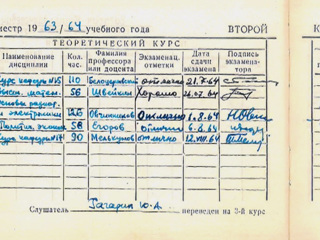 местр 19 63/64 учебного года ВТОРОЙ
ТЕОРЕТИЧЕСКИЙ КУРС
Наименование дисциплин Кол. час. Фамилия профессора или доцента Экзаменац. отметки Дата сдачи экзамена Подпись экзаменат.
Курс кафедры №15 110 отлично 21.7.64
Высш. матем. 56 Швейкин Хорошо
электроники 126 Овчинников Отлично 1.8.64
58 Егоров отлично 6.8.64
Курс кафедры 90 Мелькумов отлично 12.VIII.64
Слушатель Гагарин Ю.А. переведен на 3-й курс